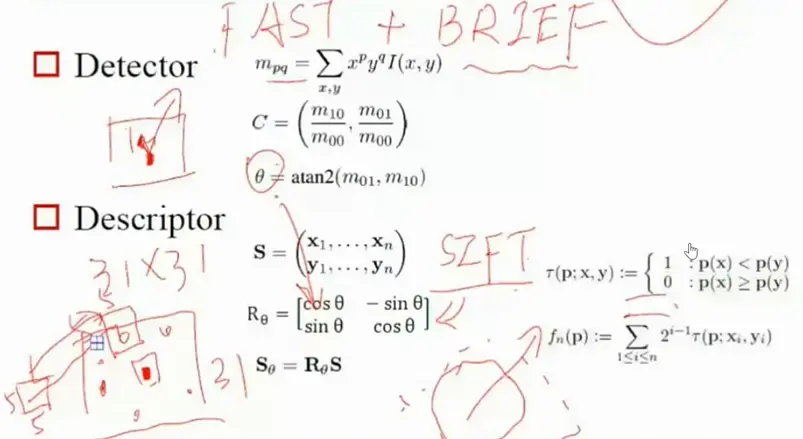 FAST + BRIEF
Detector
m_{pq} = \sum_{x,y} x^p y^q I(x, y)
C = \left( \frac{m_{10}}{m_{00}}, \frac{m_{01}}{m_{00}} \right)
θ = atan2(m_{01}, m_{10})
Descriptor
31×31
S = \begin{pmatrix} x_1, . . . , x_n \\ y_1, . . . , y_n \end{pmatrix}
SIFT
τ(p; x, y) := \begin{cases} 1 & : p(x) < p(y) \\ 0 & : p(x) ≥ p(y) \end{cases}
R_θ = \begin{bmatrix} cos θ & − sin θ \\ sin θ & cos θ \end{bmatrix}
f_n(p) := \sum_{1≤i≤n} 2^{i−1} τ(p; x_i, y_i)
S_θ = R_θ S
31
5
5